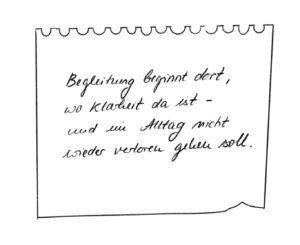 Begleitung beginnt dort,
wo Klarheit da ist -
und im Alltag nicht
wieder verloren gehen soll.